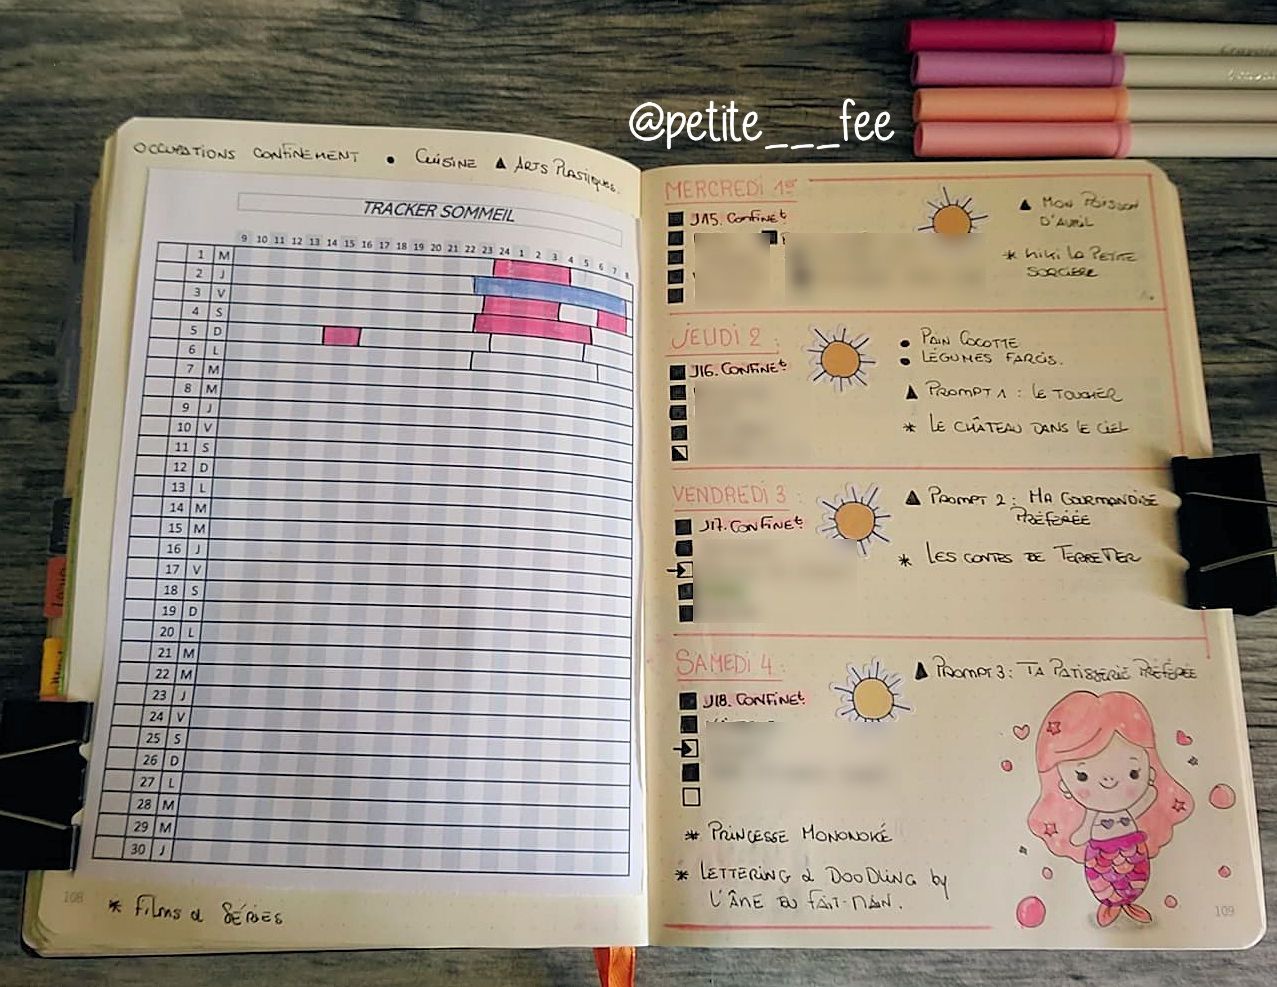 @petite___fee
OCCUPATIONS CONFINEMENT • CUISINE ▲ ARTS PLASTIQUES.
TRACKER SOMMEIL
9 10 11 12 13 14 15 16 17 18 19 20 21 22 23 24 1 2 3 4 5 6 7 8
1 M
2 J
3 V
4 S
5 D
6 L
7 M
8 M
9 J
10 V
11 S
12 D
13 L
14 M
15 M
16 J
17 V
18 S
19 D
20 L
21 M
22 M
23 J
24 V
25 S
26 D
27 L
28 M
29 M
30 J
108
* Films & SÉRIES
MERCREDI 1er
J15. CONFINEt
▲ MON POISSON
D'AVRIL
* KIKI LA PETITE
SORCIÈRE
JEUDI 2 :
J16. CONFINEt
• PAIN COCOTTE
• LÉGUMES FARCIS.
▲ PROMPT 1 : LE TOUCHER
* LE CHÂTEAU DANS LE CIEL
VENDREDI 3
J17. CONFINEt
▲ PROMPT 2 : MA GOURMANDISE
PRÉFÉRÉE
* LES CONTES DE TERREMER
SAMEDI 4 :
J18. CONFINEt
▲ PROMPT 3 : TA PATISSERIE PRÉFÉRÉE
* PRINCESSE MONONOKÉ
* LETTERING & DOODLING by
L'ÂNE DU FAIT-MAIN.
109